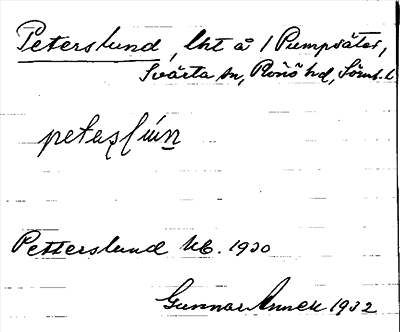 Peterslund, lht å 1 Pumpsäter,
Svärta sn, Rönö hd, Söml. l.
Petterslund kb. 1930
Gunnar Annell 1932